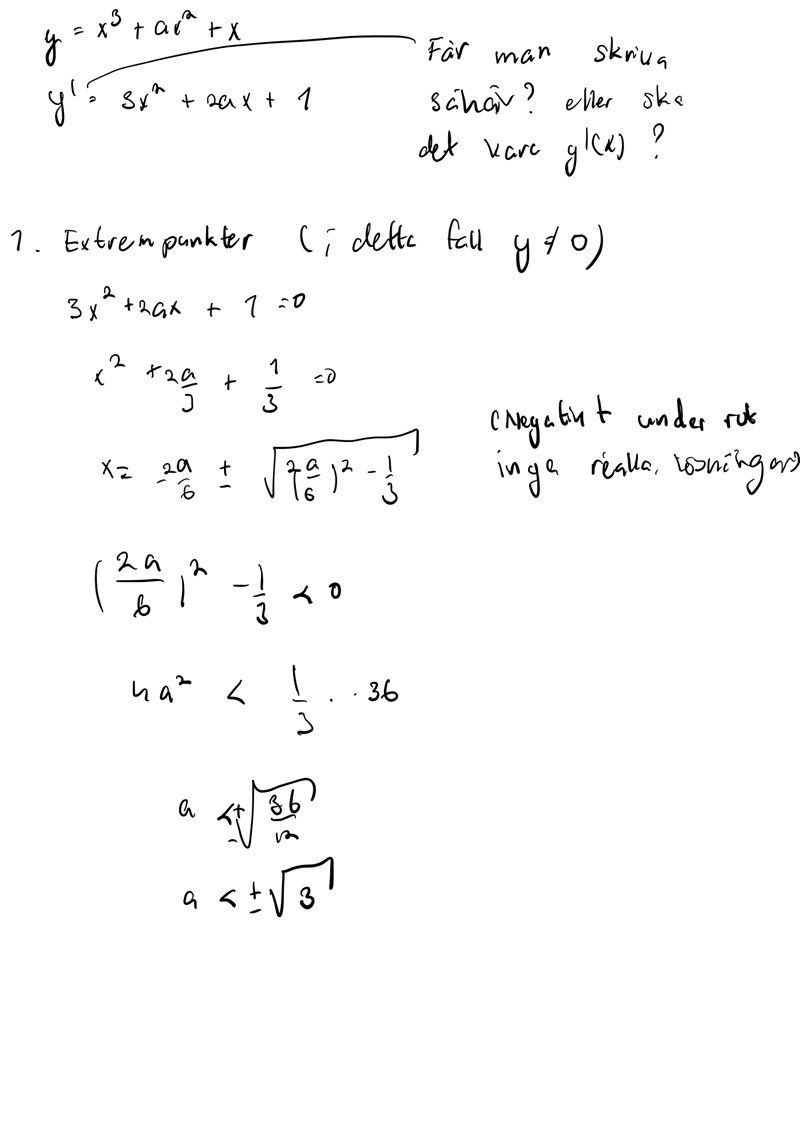 y = x³ + ax² + x
y' = 3x² + 2ax + 1
Får man skriva
såhär? eller ska
det vara y'(x) ?
1. Extrempunkter (i detta fall y ≠ 0)
3x² + 2ax + 1 = 0
x² + 2a/3 + 1/3 = 0
x = -2a/6 ± √((2a/6)² - 1/3)
(Negativt under rot
inga reella lösningar)
(2a/6)² - 1/3 < 0
4a² < 1/3 · 36
a < ±√(36/12)
a < ±√3